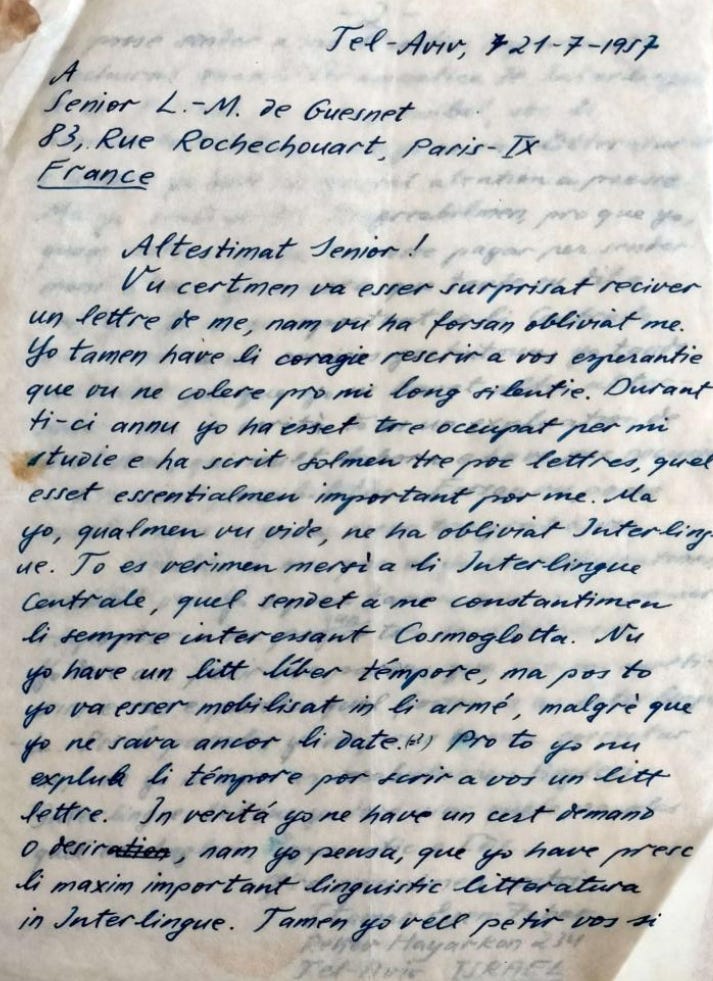 Tel-Aviv, 21-7-1957
A
Senior L.-M. de Guesnet
83, Rue Rochechouart, Paris-IX
France
Altestimat Senior!
Vu certmen va esser surprisat reciver
un lettre de me, nam vu ha forsan obliviat me.
Yo tamen have li coragie rescrir a vos esperantie
que vu ne colere pro mi long silentie. Durant
ti-ci annu yo ha esset tre occupat per mi
studie e ha scrit solmen tre poc lettres, quel
esset essentialmen important por me. Ma
yo, qualmen vu vide, ne ha obliviat Interling-
ue. To es verimen mersi a li Interlingue
Centrale, quel sendet a me constantimen
li sempre interessant Cosmoglotta. Nu
yo have un litt líber témpore, ma pos to
yo va esser mobilisat in li armé, malgrè que
yo ne sava ancor li date. Pro to yo nu
li témpore por scrir a vos un litt
lettre. In verità yo ne have un cert demand
o desir, nam yo pensa, que yo have presc
li maxim important linguistic litteratura
in Interlingue. Tamen yo vell petir vos si
Hayarkon 234
Tel-Aviv ISRAEL